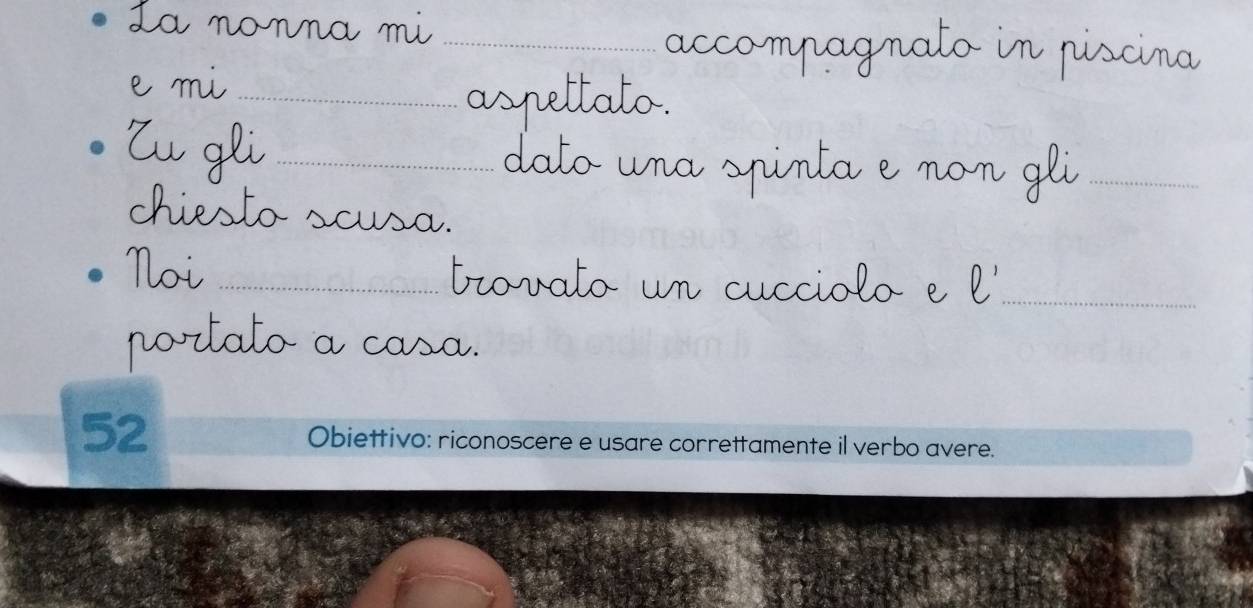 • La nonna mi ____________ accompagnato in piscina
e mi ____________ aspettato.
• Tu gli ____________ dato una spinta e non gli ______
chiesto scusa.
• Noi ____________ trovato un cucciolo e l'____________
portato a casa.
52
Obiettivo: riconoscere e usare correttamente il verbo avere.